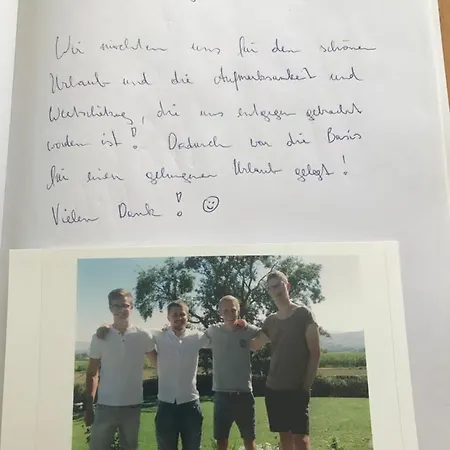 Wir möchten uns für den schönen
Urlaub und die Aufmerksamkeit und
Wertschätzung, die uns entgegen gebracht
worden ist! Dadurch war die Basis
für einen gelungenen Urlaub gelegt!
Vielen Dank! ☺